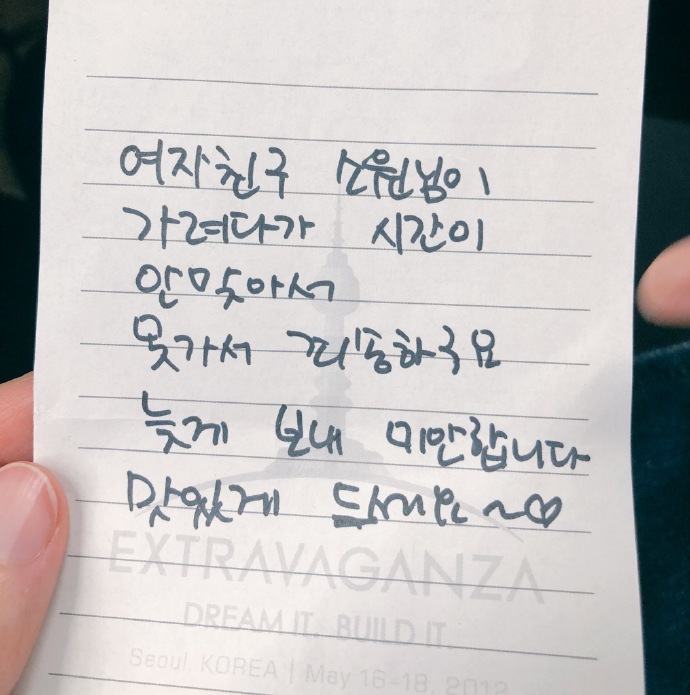 여자친구 소원님이
가려다가 시간이
안맞아서
못가서 죄송하구요
늦게 보내 미안합니다
맛있게 드세요~♡
EXTRAVAGANZA
DREAM IT. BUILD IT.
Seoul. KOREA | May 16-18, 2012